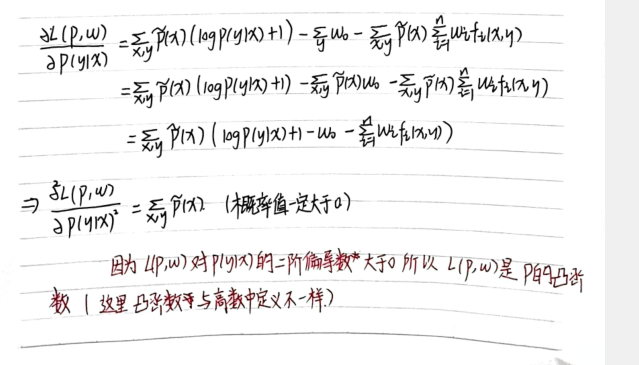 ∂L(p,w)/∂p(y|x) = ∑x,y p̃(x)(log p(y|x)+1) - ∑y w₀ - ∑x,y p̃(x) ∑i=1ⁿ wᵢfᵢ(x,y)
= ∑x,y p̃(x)(log p(y|x)+1) - ∑x,y p̃(x)w₀ - ∑x,y p̃(x) ∑i=1ⁿ wᵢfᵢ(x,y)
= ∑x,y p̃(x)(log p(y|x)+1-w₀ - ∑i=1ⁿ wᵢfᵢ(x,y))
⇒ ∂²L(p,w)/∂p(y|x)² = ∑x,y p̃(x). (概率值一定大于0)
因为 L(p,w) 对 p(y|x) 的二阶偏导数 大于0 所以 L(p,w) 是 P的凸函
数 (这里凸函数 与高数中定义不一样.)